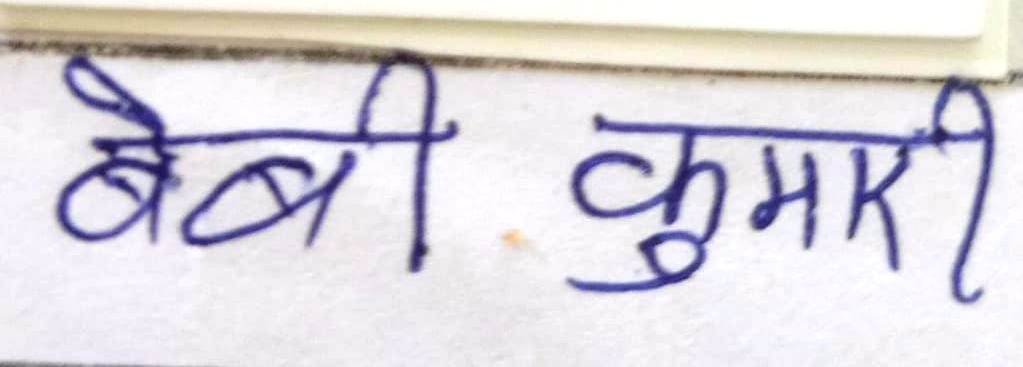 बेबी कुमारी